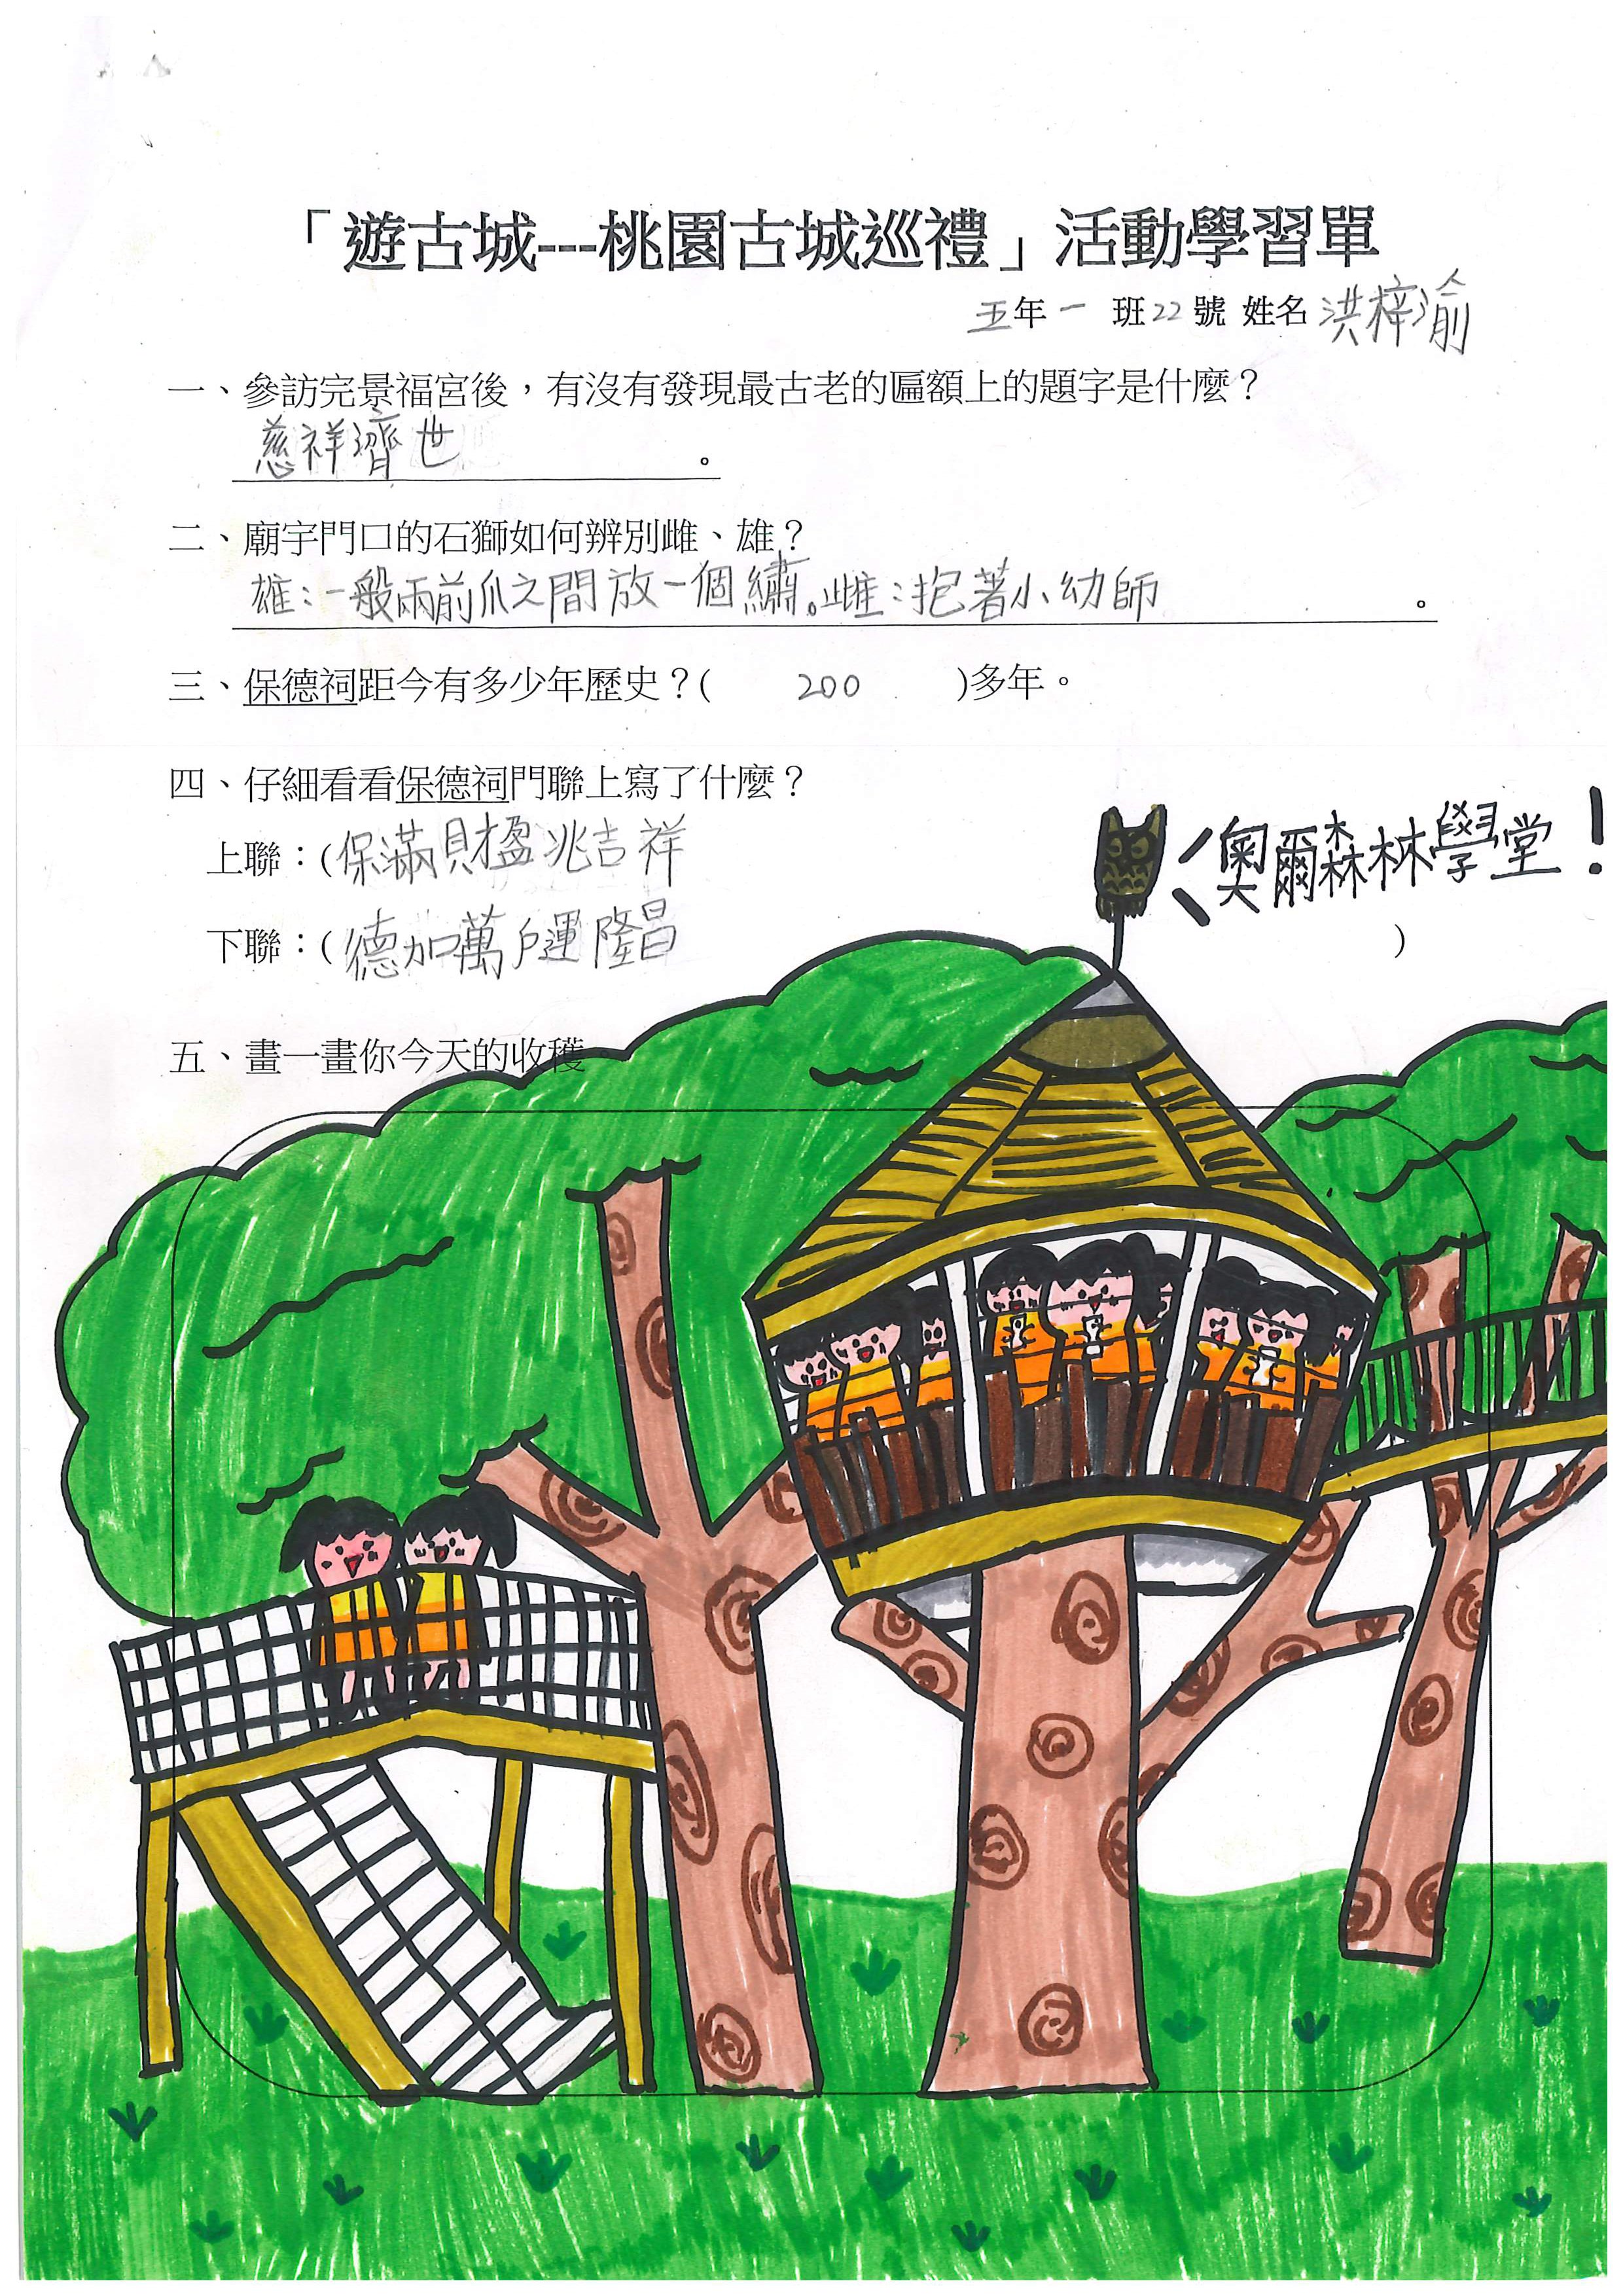 「遊古城---桃園古城巡禮」活動學習單
五年一 班22號 姓名 洪梓渝
一、參訪完景福宮後，有沒有發現最古老的匾額上的題字是什麼？
慈祥濟世。
二、廟宇門口的石獅如何辨別雌、雄？
雄：一般兩前爪之間放一個繡。雌：抱著小幼師。
三、保德祠距今有多少年歷史？( 200 )多年。
四、仔細看看保德祠門聯上寫了什麼？
上聯：(保滿財盈兆吉祥
奧爾森林學堂！
下聯：(德加萬戶運隆昌 )
五、畫一畫你今天的收穫。